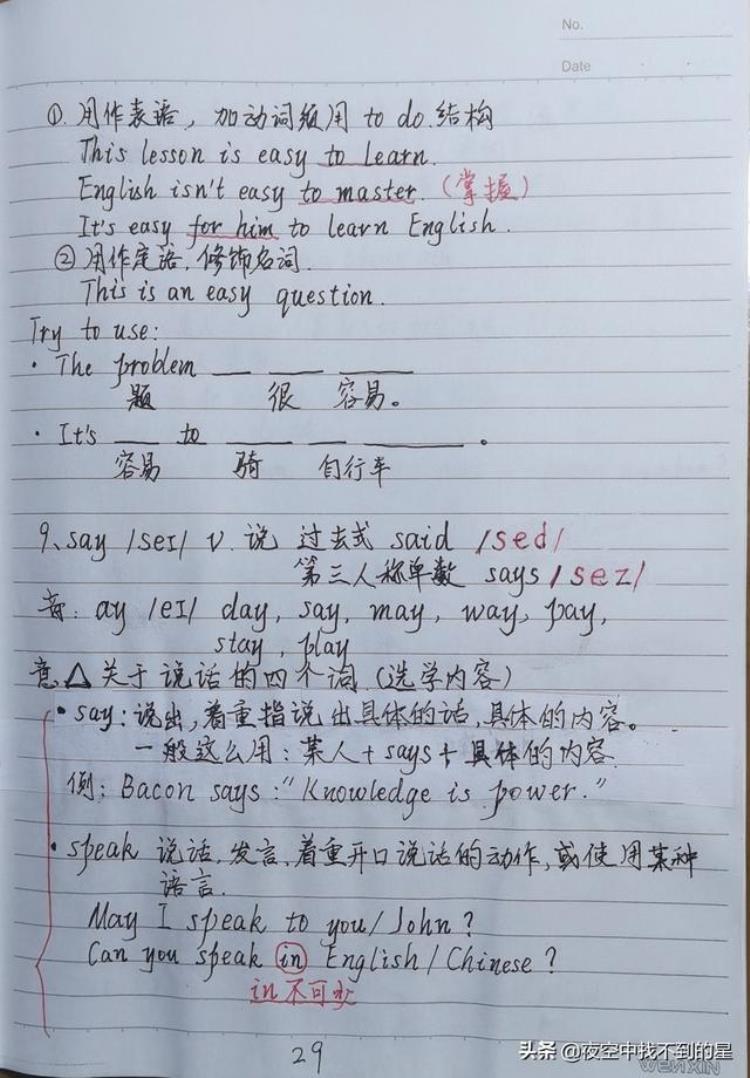 No.
Date
①. 用作表语，加动词须用 to do 结构
This lesson is easy to learn.
English isn't easy to master. (掌握)
It's easy for him to learn English.
② 用作定语，修饰名词.
This is an easy question.
Try to use:
· The problem __ ___ ____
题 很 容易。
· It's ___ to ____ __ _____ 。
容易 骑 自行车
9、say /seɪ/ v. 说 过去式 said /sed/
第三人称单数 says /sez/
音: ay /eɪ/ day, say, may, way, pay,
stay, play
意△关于说话的四个词 (选学内容)
· say: 说出，着重指说出具体的话，具体的内容。
一般这么用：某人+says+具体的内容.
例: Bacon says: "Knowledge is power."
· speak 说话，发言、着重开口说话的动作，或使用某种
语言.
May I speak to you/John?
Can you speak in English/Chinese?
in不可少
29
头条 @夜空中找不到的星
WENXIN